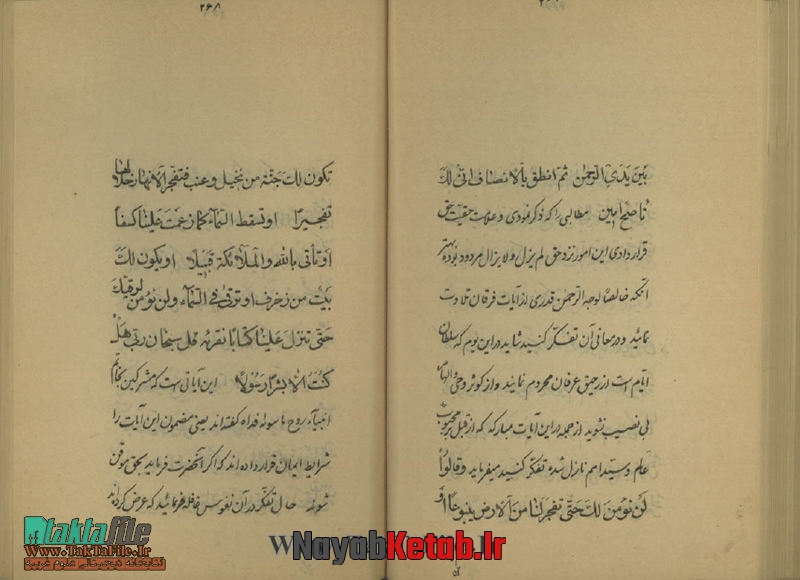 بین یدی الرحمن ثم انطق بالانصاف انی لک
ناصح امین مطالبی را که ذکر نمودی و علامت حقیت حق
قرار دادی این امور نزد حق لم یزل و لا یزال مردود بوده بهتر
آنکه خالصاً لوجه الرحمن قدری از آیات فرقان تلاوت
نمائید و در معانی آن تفکر کنید شاید در این یوم که سلطان
ایام است از رحیق عرفان محروم نمانید و از کوثر وحی الهام
بی نصیب نشوید از جمله در این آیات مبارکه که از قبل بر محبوب
عالم و سید امم نازل شده تفکر کنید میفرماید و قالوا
لن نؤمن لک حتی تفجر لنا من الارض ینبوعاً او
۲۶۸
تکون لک جنّة من نخیل و عنب فتفجر الانهار خلالها
تفجیراً او تسقط السّمآء کما زعمت علینا کسفاً
او تأتی بالله و الملآئکة قبیلا او یکون لک
بیت من زخرف او ترقی فی السّمآء و لن نؤمن لرقیک
حتی تنزل علینا کتاباً نقرئه قل سبحان ربی هل
کنت الا بشراً رسولاً این آیاتی است که مشرکین بخاتم
انبیآء روح ما سواه فداه گفته اند یعنی مضمون این آیات را
شرایط ایمان قرار داده اند که اگر آنحضرت فرماید بحق موقن
شوند حال تفکر در آن نفوس غافله فرمائید که عرض کرده اند
taktafile
Www.TakTaFile.Ir
کتابخانه دیجیتالی علوم غریبه
NayabKetab.Ir